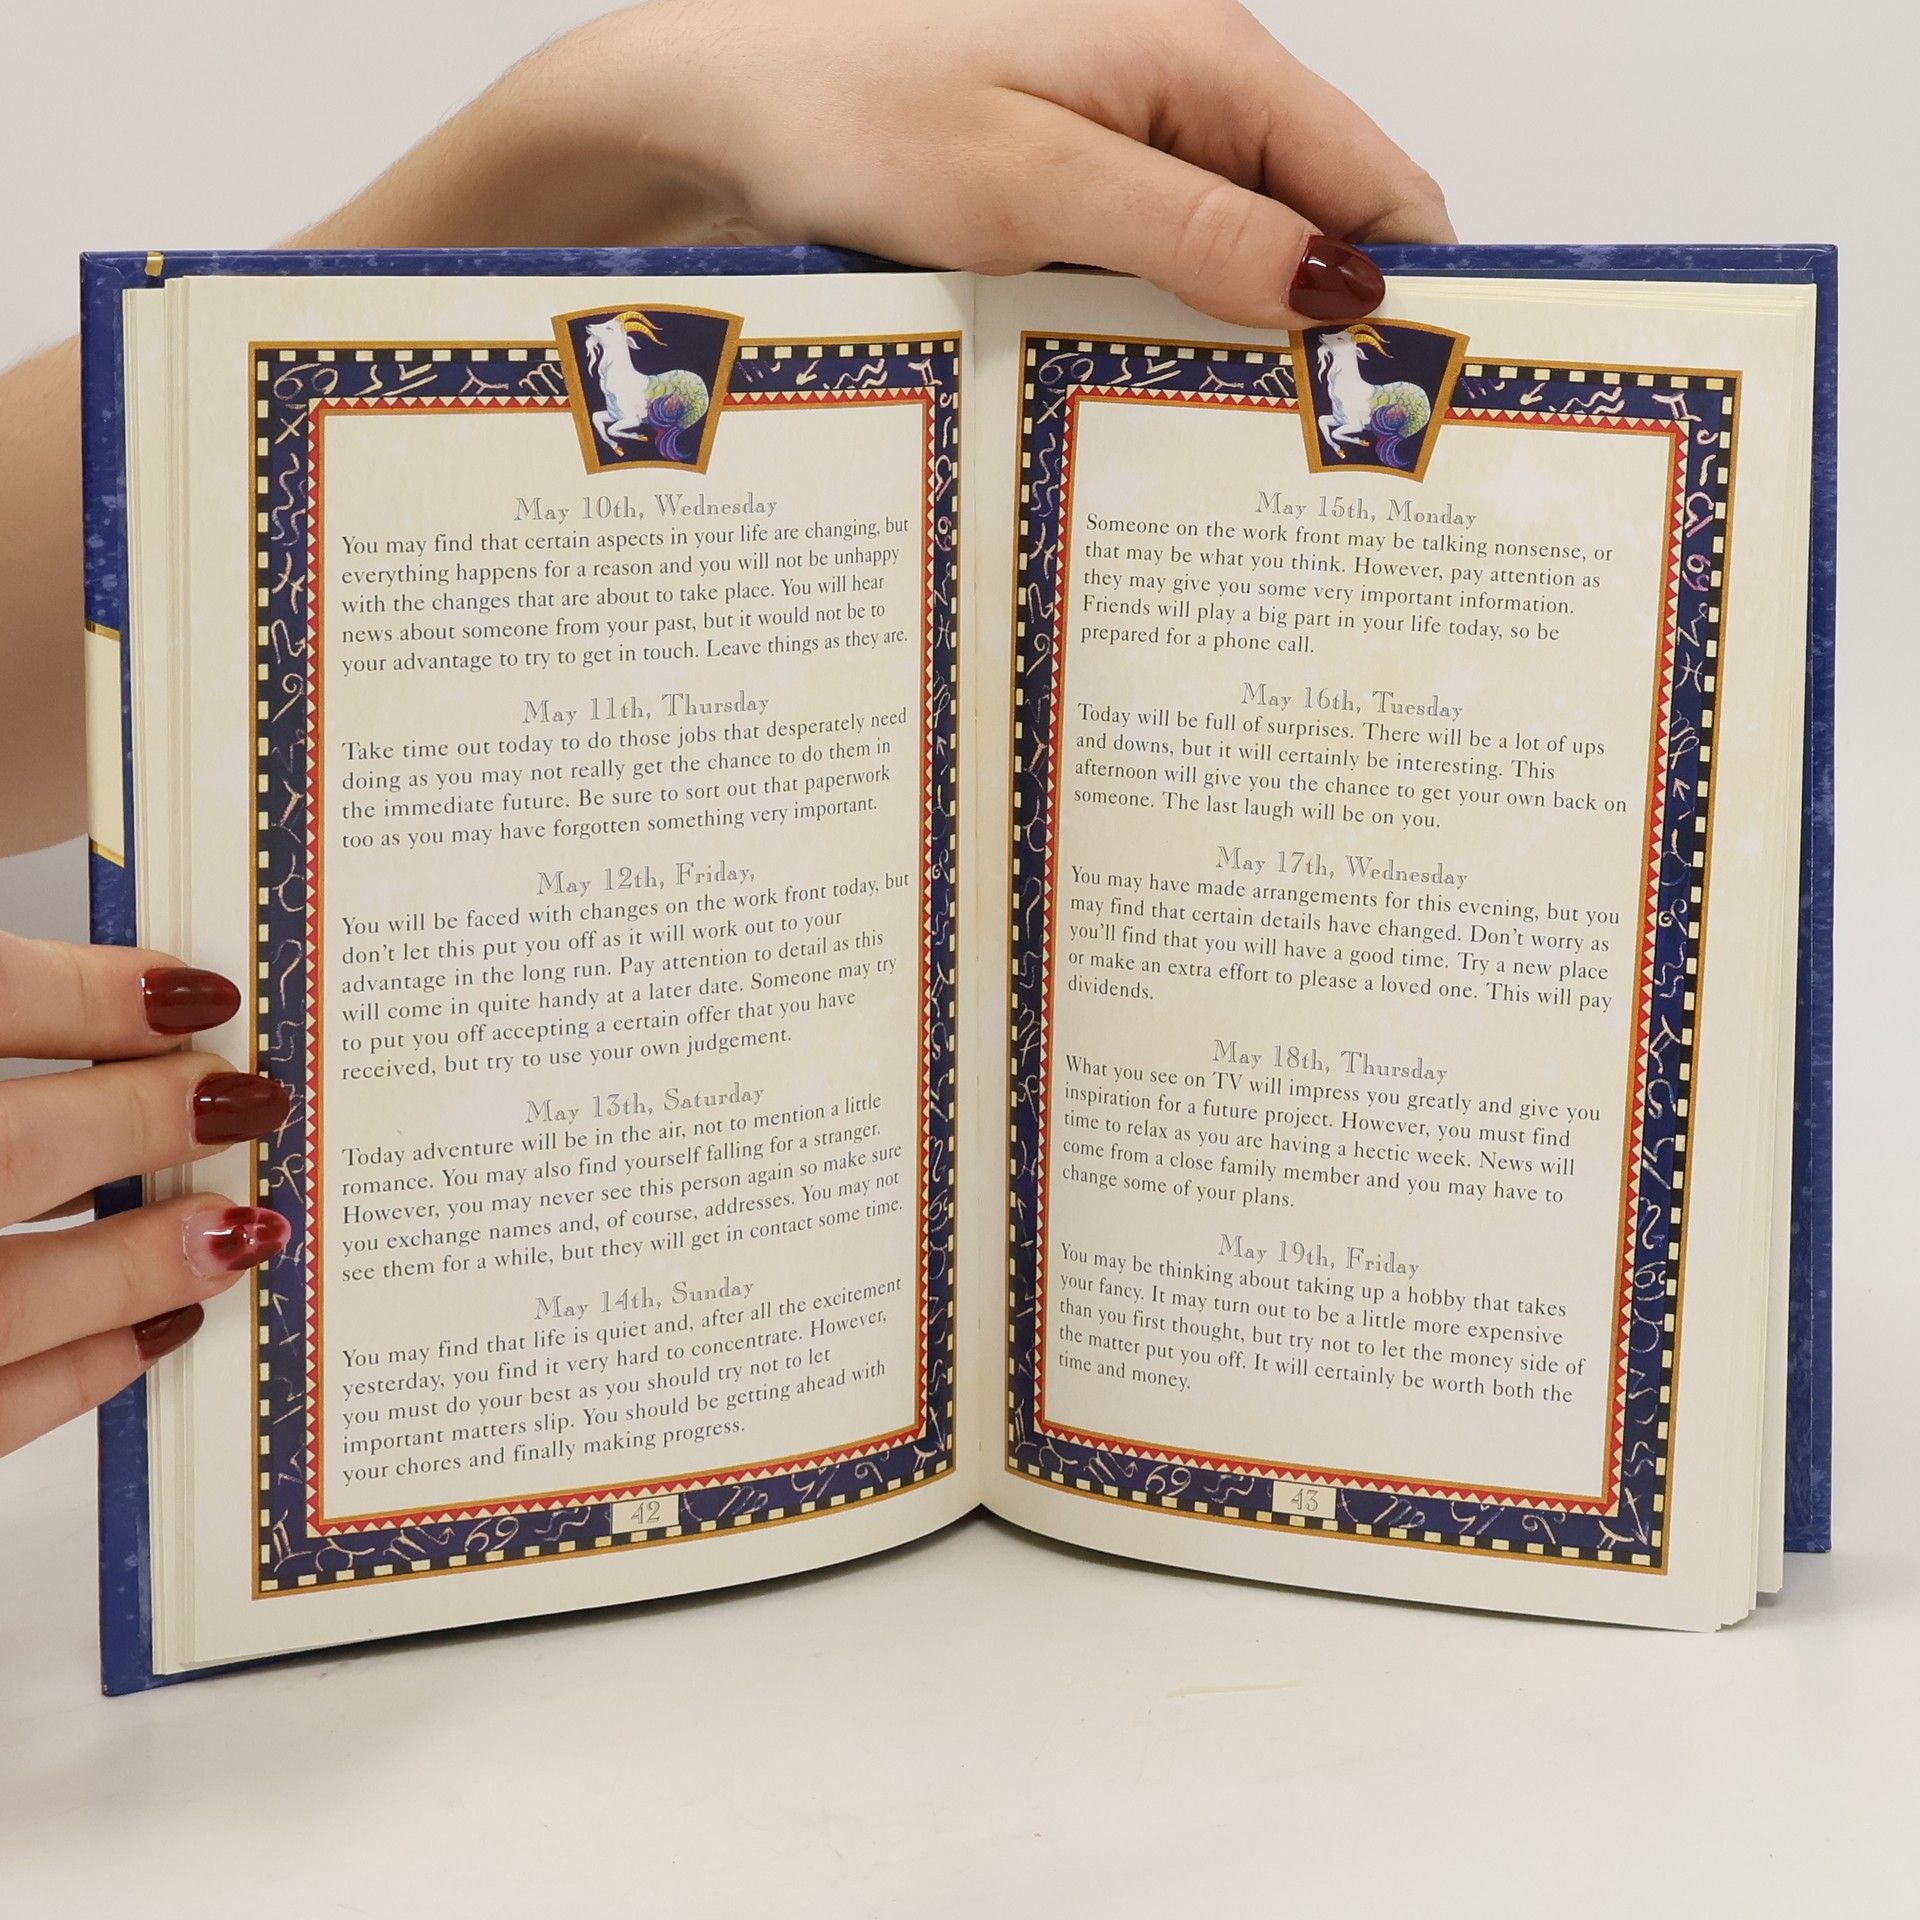 May 10th, Wednesday
You may find that certain aspects in your life are changing, but
everything happens for a reason and you will not be unhappy
with the changes that are about to take place. You will hear
news about someone from your past, but it would not be to
your advantage to try to get in touch. Leave things as they are.
May 11th, Thursday
Take time out today to do those jobs that desperately need
doing as you may not really get the chance to do them in
the immediate future. Be sure to sort out that paperwork
too as you may have forgotten something very important.
May 12th, Friday,
You will be faced with changes on the work front today, but
don't let this put you off as it will work out to your
advantage in the long run. Pay attention to detail as this
will come in quite handy at a later date. Someone may try
to put you off accepting a certain offer that you have
received, but try to use your own judgement.
May 13th, Saturday
Today adventure will be in the air, not to mention a little
romance. You may also find yourself falling for a stranger.
However, you may never see this person again so make sure
you exchange names and, of course, addresses. You may not
see them for a while, but they will get in contact some time.
May 14th, Sunday
You may find that life is quiet and, after all the excitement
yesterday, you find it very hard to concentrate. However,
you must do your best as you should try not to let
important matters slip. You should be getting ahead with
your chores and finally making progress.
42
May 15th, Monday
Someone on the work front may be talking nonsense, or
that may be what you think. However, pay attention as
they may give you some very important information.
Friends will play a big part in your life today, so be
prepared for a phone call.
May 16th, Tuesday
Today will be full of surprises. There will be a lot of ups
and downs, but it will certainly be interesting. This
afternoon will give you the chance to get your own back on
someone. The last laugh will be on you.
May 17th, Wednesday
You may have made arrangements for this evening, but you
may find that certain details have changed. Don't worry as
you'll find that you will have a good time. Try a new place
or make an extra effort to please a loved one. This will pay
dividends.
May 18th, Thursday
What you see on TV will impress you greatly and give you
inspiration for a future project. However, you must find
time to relax as you are having a hectic week. News will
come from a close family member and you may have to
change some of your plans.
May 19th, Friday
You may be thinking about taking up a hobby that takes
your fancy. It may turn out to be a little more expensive
than you first thought, but try not to let the money side of
the matter put you off. It will certainly be worth both the
time and money.
43